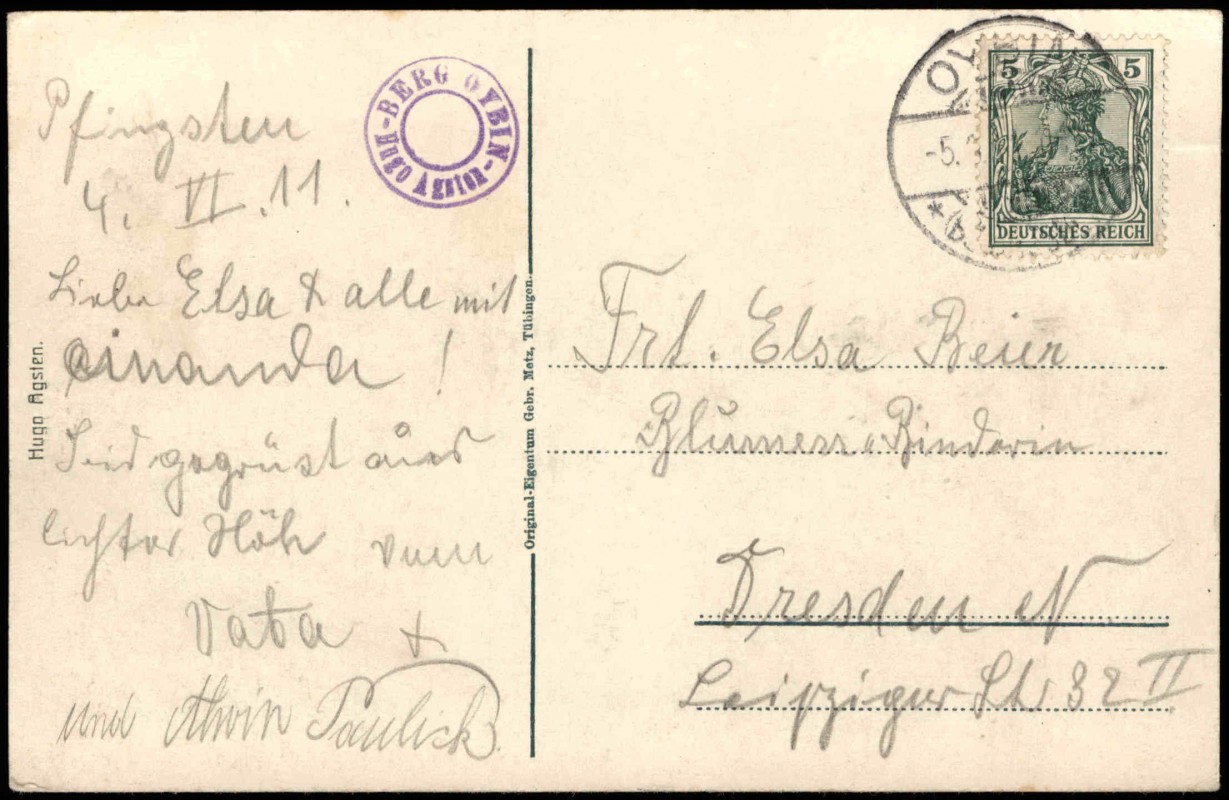 Pfingsten
4. VI. 11.
Liebe Elsa & alle mit
einanda!
Seid gegrüst aus
lichter Höh vom
Vata &
und Alwin Paulick.
-BERG OYBIN-
Hugo Agsten
Hugo Agsten.
Original-Eigentum Gebr. Metz, Tübingen.
OYBIN
-5.
5 5
DEUTSCHES REICH
Frl. Elsa Beier
Blumen-Binderin
Dresden N
Leipziger St. 32 II